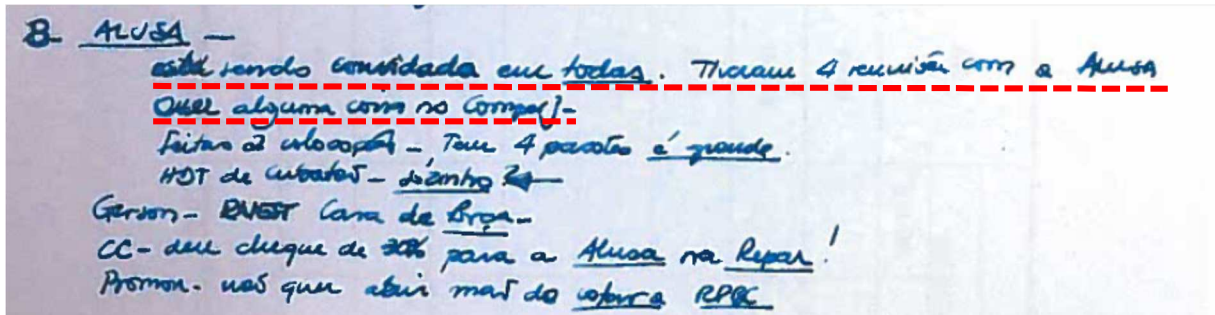 8- ALUSA -
está sendo convidada em todas. Tiveram 4 reunião com a Alusa
Quer alguma coisa no Comperj-
Feitas as colocações - Tem 4 pacotes é grande.
HDT de Cubatão - sozinha ?
Gerson - RNEST Casa de
CC- deu cheque de 30% para a Alusa na Repar!
Promon - não quer abrir mão do RPBC